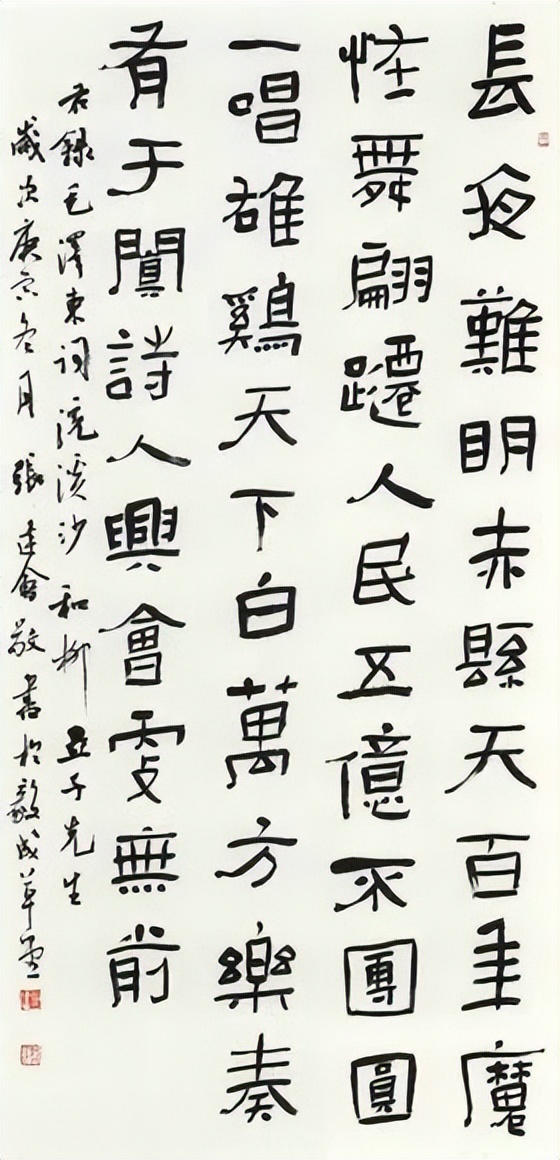 長夜難明赤縣天百年魔
怪舞翩躚人民五億不團圓
一唱雄鷄天下白萬方樂奏
有于闐詩人興會更無前
右錄毛澤東詞浣溪沙和柳亞子先生
歲次庚寅冬月張建會敬書於毅成草堂